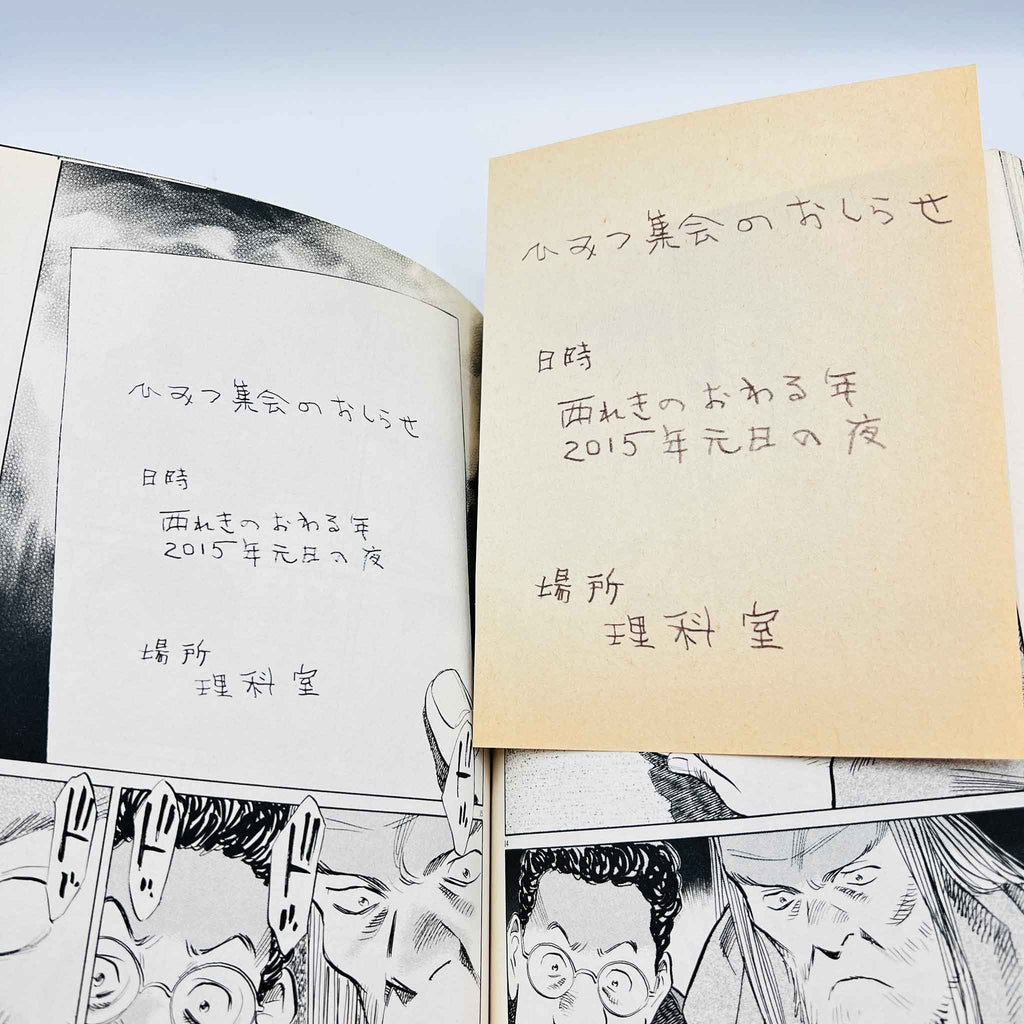 ひみつ集会のおしらせ
日時
西れきのおわる年
2015年元日の夜
場所
理科室
ひみつ集会のおしらせ
日時
西れきのおわる年
2015年元日の夜
場所
理科室
ドド
ドド
ドド
14